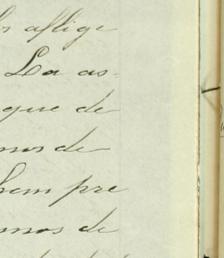 aflige
La as-
que de
mos de
hom pre
mos de